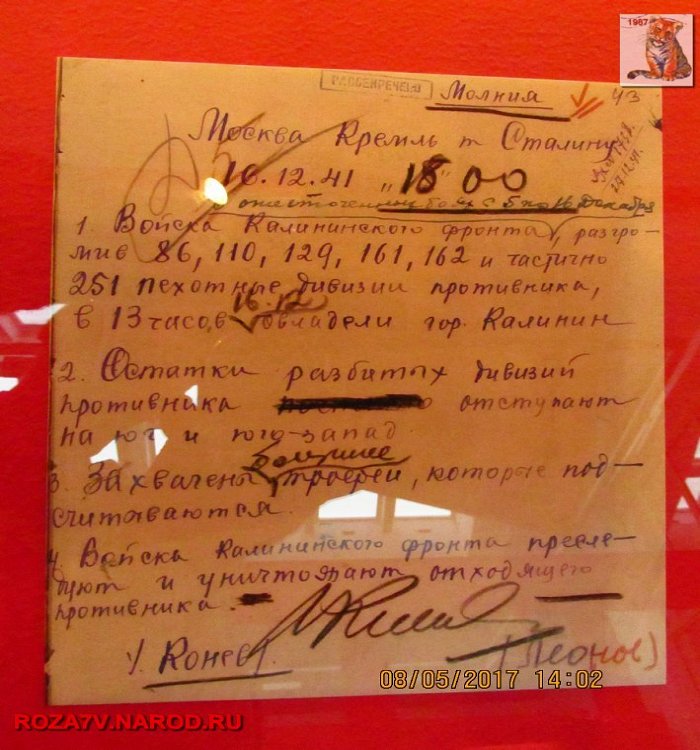 1987
РАССЕКРЕЧЕНО
Молния
43
Москва Кремль т Сталину
16.12.41 „18" 00
в ожесточенных боях с 5 по 16 декабря
1. Войска Калининского фронта, разгро-
мив 86, 110, 129, 161, 162 и частично
251 пехотные дивизии противника,
16.12
в 13 часов овладели гор. Калинин
2. Остатки разбитых дивизий
противника отступают
на юг и юго-запад.
большие
3. Захвачены трофеи, которые под-
считываются.
4. Войска Калининского фронта пресле-
дуют и уничтожают отходящего
противника.
Конев
08/05/2017 14:02
ROZA7V.NAROD.RU